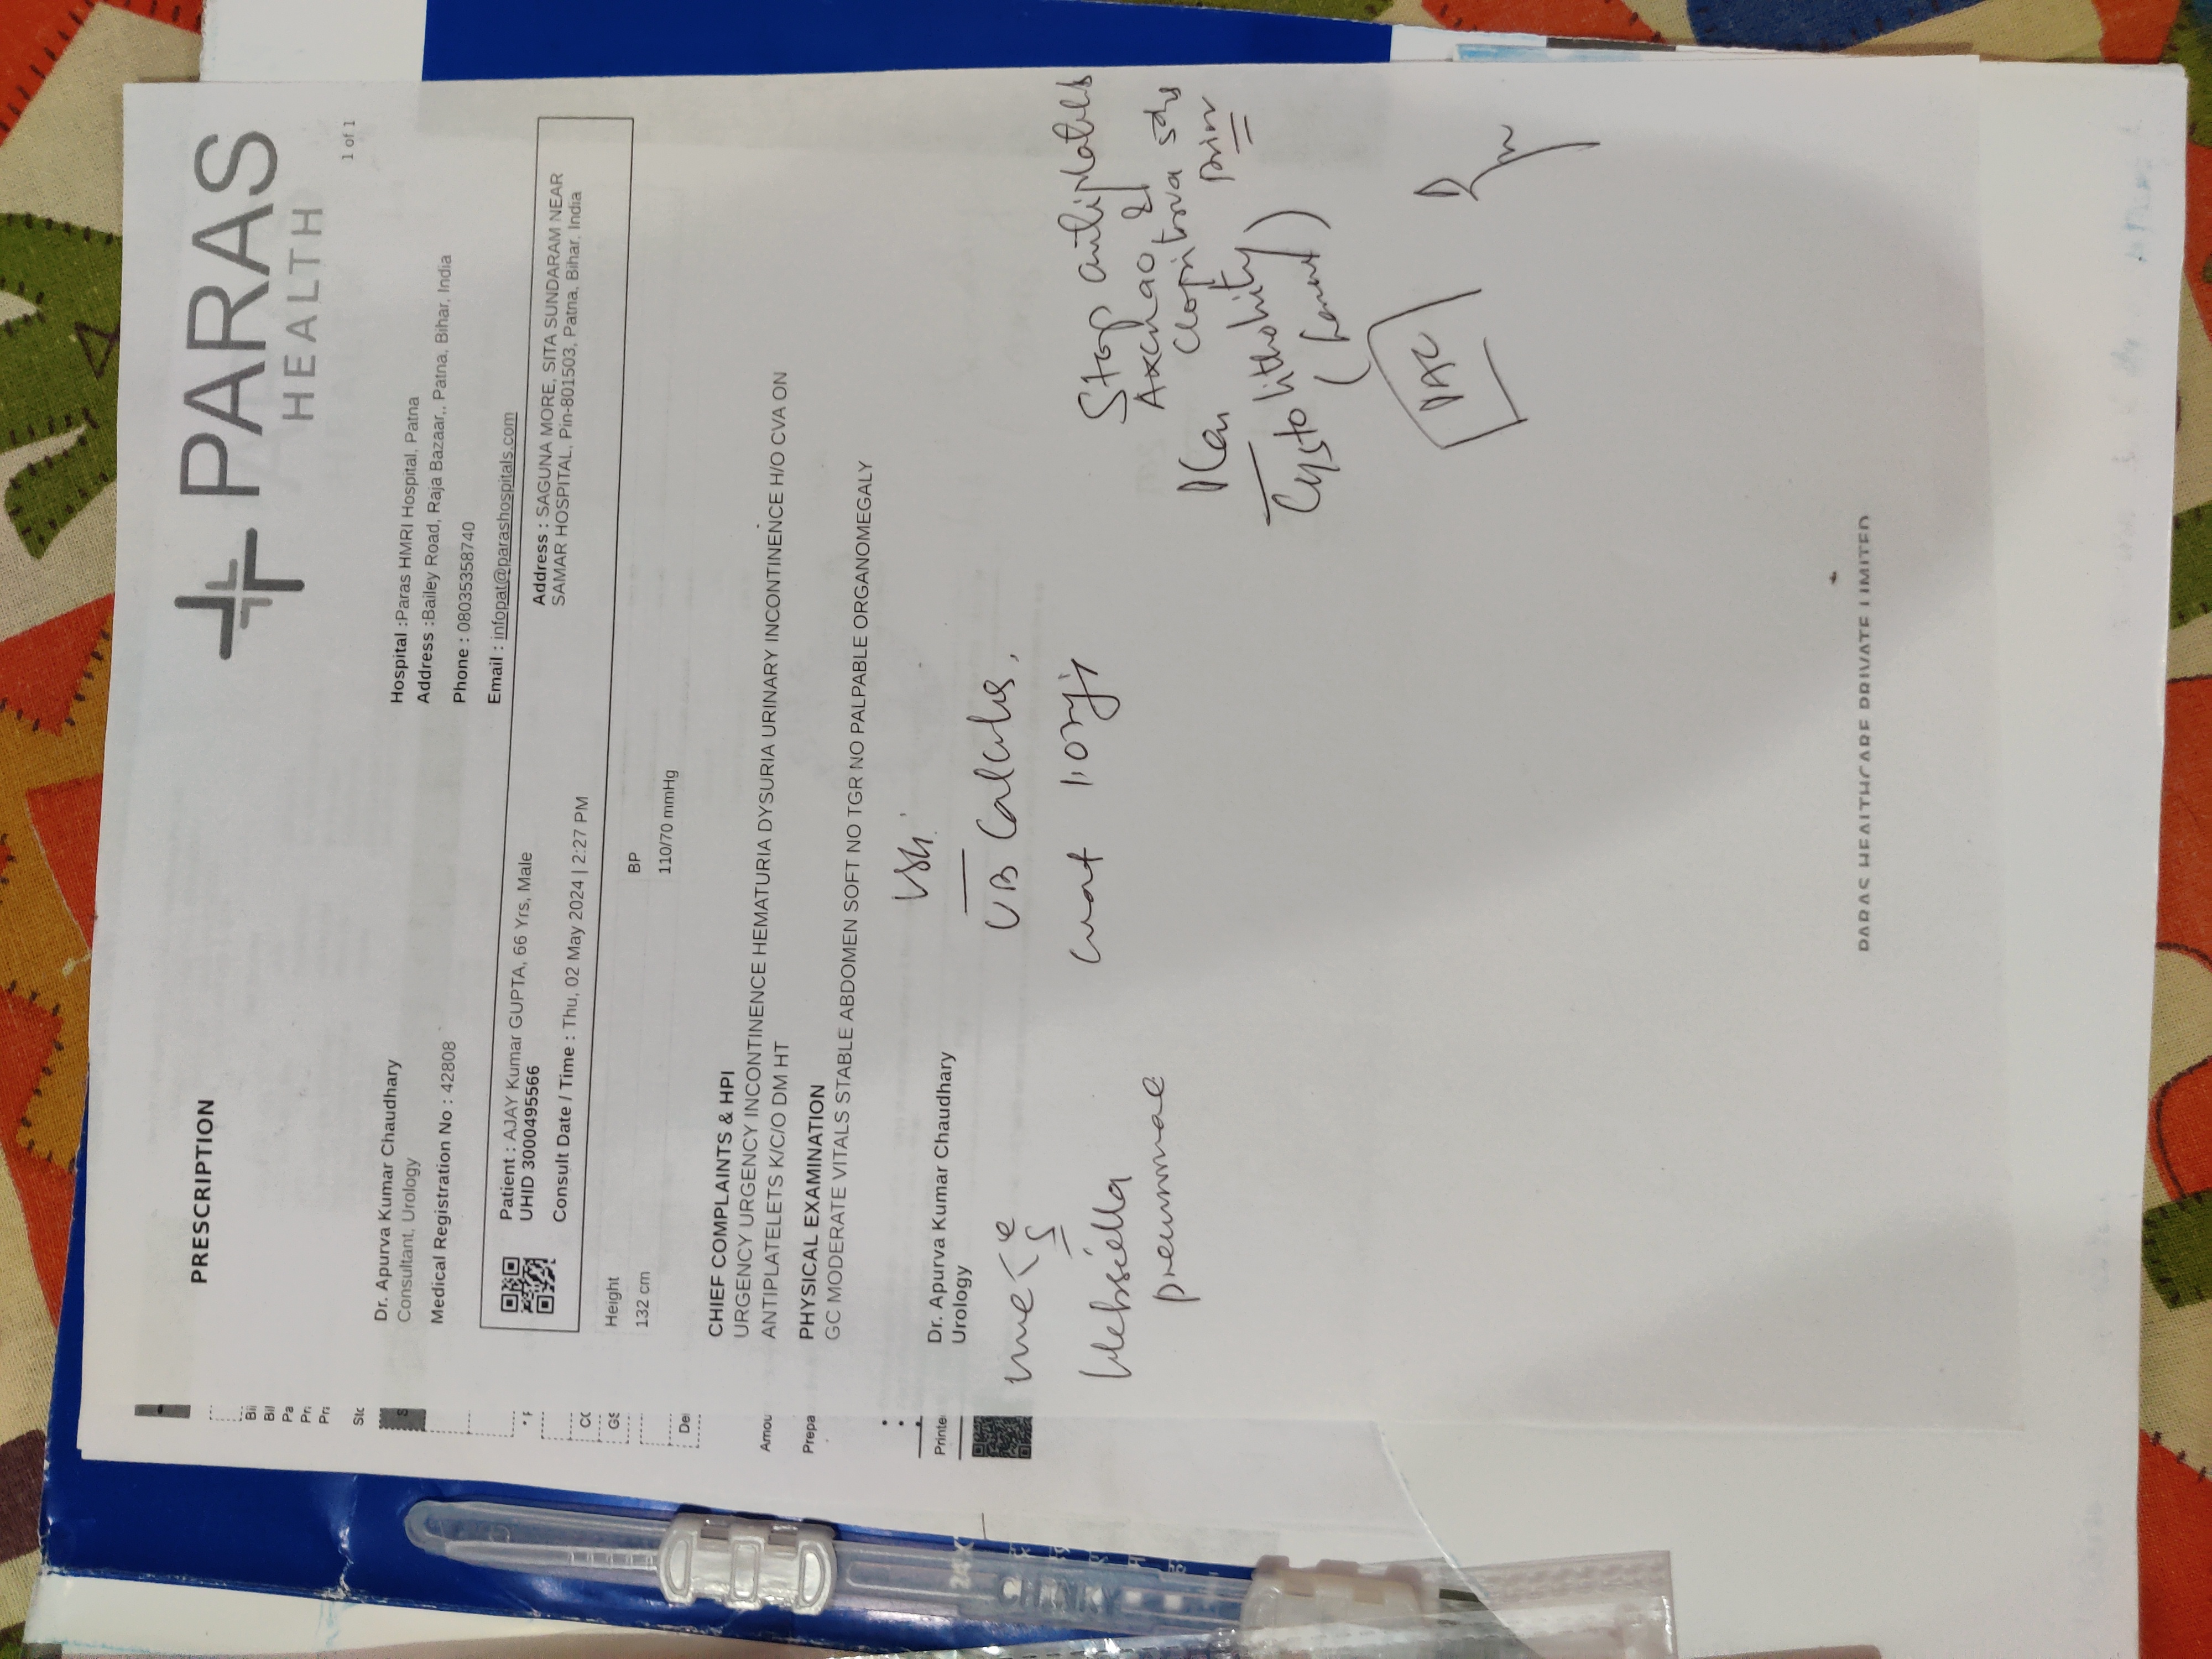 PRESCRIPTION
PARAS
HEALTH
1 of 1
Dr. Apurva Kumar Chaudhary
Consultant, Urology
Medical Registration No : 42808
Hospital :Paras HMRI Hospital, Patna
Address :Bailey Road, Raja Bazaar,, Patna, Bihar, India
Phone : 08035358740
Email : infopat@parashospitals.com
Patient : AJAY Kumar GUPTA, 66 Yrs, Male
UHID 3000495566
Consult Date / Time : Thu, 02 May 2024 | 2:27 PM
Address : SAGUNA MORE, SITA SUNDARAM NEAR
SAMAR HOSPITAL, Pin-801503, Patna, Bihar, India
Height BP
132 cm 110/70 mmHg
CHIEF COMPLAINTS & HPI
URGENCY URGENCY INCONTINENCE HEMATURIA DYSURIA URINARY INCONTINENCE H/O CVA ON
ANTIPLATELETS K/C/O DM HT
PHYSICAL EXAMINATION
GC MODERATE VITALS STABLE ABDOMEN SOFT NO TGR NO PALPABLE ORGANOMEGALY
Dr. Apurva Kumar Chaudhary
Urology
Klebsiella
pneumonae
UB Calculus,
Stop antiplatlets
&
Clopitova 5dys
Plan
Cysto litholity
PAC
PARAS HEALTHCARE PRIVATE LIMITED
Bil
Pa
Stc
GS
De
Amou
Prepa
Printe